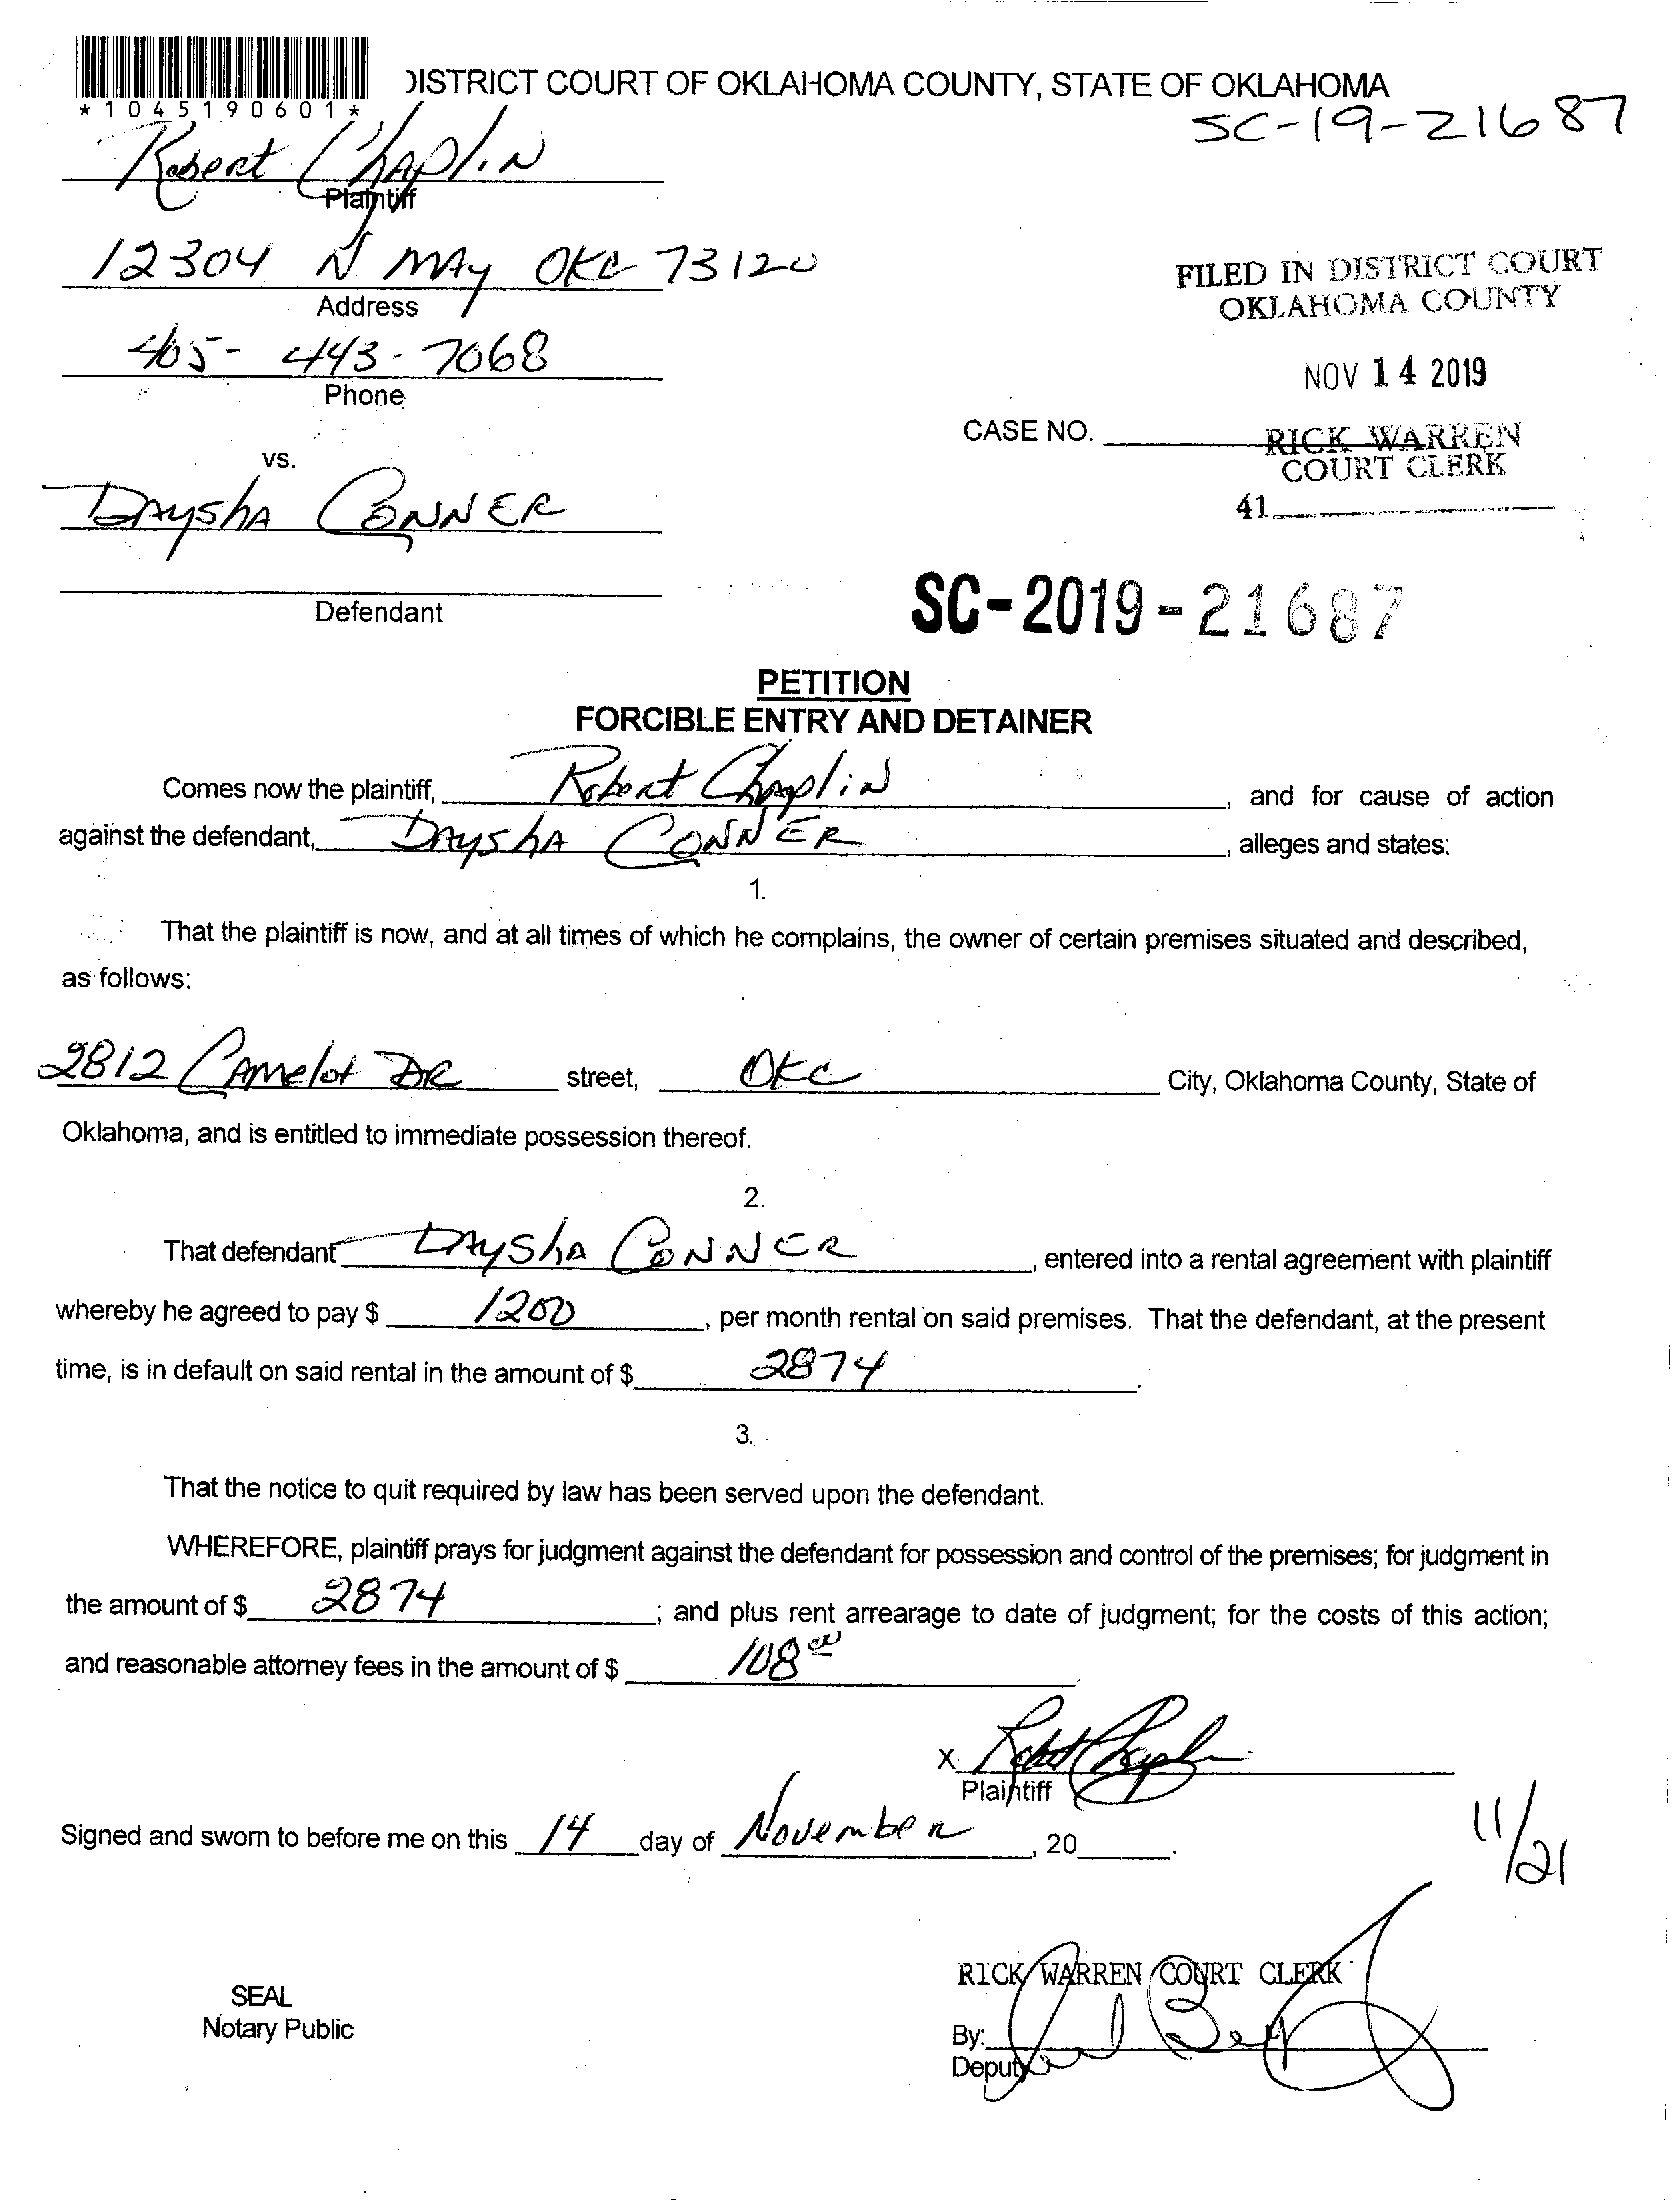 *1045190601*
DISTRICT COURT OF OKLAHOMA COUNTY, STATE OF OKLAHOMA
SC-19-21687
Robert Chaplin
Plaintiff
12304 N MAy OKC 73120
Address
FILED IN DISTRICT COURT
OKLAHOMA COUNTY
405-443-7068
Phone
NOV 14 2019
CASE NO.
RICK WARREN
COURT CLERK
41
vs.
DAyshA CONNER
Defendant
SC-2019-21687
PETITION
FORCIBLE ENTRY AND DETAINER
Comes now the plaintiff, Robert Chaplin, and for cause of action
against the defendant, DAyshA CONNER, alleges and states:
1.
That the plaintiff is now, and at all times of which he complains, the owner of certain premises situated and described,
as follows:
2812 CAmelot DR street, OKC City, Oklahoma County, State of
Oklahoma, and is entitled to immediate possession thereof.
2.
That defendant DAyshA CONNER, entered into a rental agreement with plaintiff
whereby he agreed to pay $ 1200, per month rental on said premises. That the defendant, at the present
time, is in default on said rental in the amount of $ 2874.
3.
That the notice to quit required by law has been served upon the defendant.
WHEREFORE, plaintiff prays for judgment against the defendant for possession and control of the premises; for judgment in
the amount of $ 2874; and plus rent arrearage to date of judgment; for the costs of this action;
and reasonable attorney fees in the amount of $ 108 00
X Robert Chaplin
Plaintiff
Signed and sworn to before me on this 14 day of November, 20 .
11/21
RICK WARREN COURT CLERK
SEAL
Notary Public
By:
Deputy